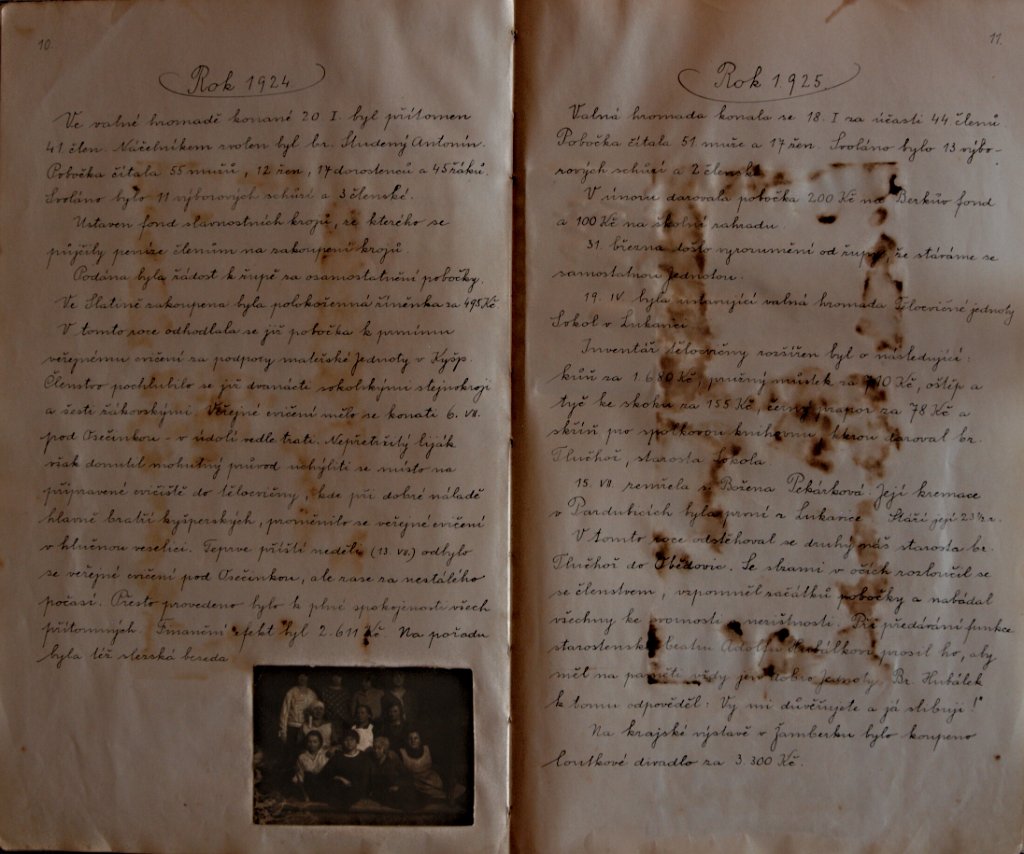 10.
Rok 1924
Ve valné hromadě konané 20. I. byl přítomen
41. člen. Náčelníkem zvolen byl br. Studený Antonín.
Pobočka čítala 55 mužů, 12 žen, 17 dorostenců a 45 žáků.
Svoláno bylo 11 výborových schůzí a 3 členské.
Ustaven fond slavnostních krojů, ze kterého se
půjčily peníze členům na zakoupení krojů.
Podána byla žádost k župě za osamostatnění pobočky.
Ve Slatině zakoupena byla polokožená žíněnka za 495 Kč.
V tomto roce odhodlala se již pobočka k prvnímu
veřejnému cvičení za podpory mateřské Jednoty v Kyšp.
Členstvo pochlubilo se již dvanácti sokolskými stejnokroji
a šesti žákovskými. Veřejné cvičení mělo se konati 6. VII.
pod Osečinkou - v údolí vedle trati. Nepřetržitý liják
však donutil mohutný průvod uchýliti se místo na
připravené cvičiště do tělocvičny, kde při dobré náladě
hlavně bratří kyšperských, proměnilo se veřejné cvičení
v hlučnou veselici. Teprve příští neděli (13. VII.) odbylo
se veřejné cvičení pod Osečinkou, ale zase za nestálého
počasí. Přesto provedeno bylo k plné spokojenosti všech
přítomných. Finanční efekt byl 2.611 Kč. Na pořadu
byla též selská beseda.
11.
Rok 1925.
Valná hromada konala se 18. I za účasti 44 členů
Pobočka čítala 51 muže a 17 žen. Svoláno bylo 13 výbo-
rových schůzí a 2 členské.
V únoru darovala pobočka 200 Kč na Berkův fond
a 100 Kč na školní zahradu.
31. března došlo vyrozumění od župy, že stáváme se
samostatnou jednotou.
19. IV. byla ustavující valná hromada Tělocvičné jednoty
Sokol v Lukavici.
Inventář tělocvičny rozšířen byl o následující:
kůň za 1.680 Kč, pružný můstek za Kč, oštěp a
tyč ke skoku za 155 Kč, černý prapor za 78 Kč a
skříň pro spolkovou knihovnu, kterou daroval br.
Tlučhoř, starosta Sokola.
15. VII. zemřela s. Božena Pekárková. Její kremace
v Pardubicích byla první z Lukavice. Stáří její 23½ r.
V tomto roce odstěhoval se druhý náš starosta br.
Tlučhoř do Obědovic. Se slzami v očích rozloučil se
se členstvem, vzpomněl začátků pobočky a nabádal
všechny ke svornosti a nezištnosti. Při předávání funkce
starostenské bratru Adolfu Hubálkovi prosil ho, aby
měl na paměti vždy jen dobro Jednoty. Br. Hubálek
k tomu odpověděl: Vy mi důvěřujete a já slibuji!"
Na krajské výstavě v Žamberku bylo koupeno
loutkové divadlo za 3.300 Kč.